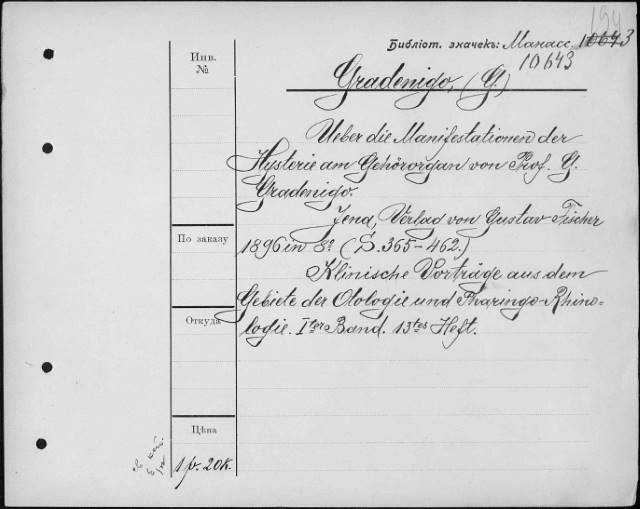 194
Библіот. значекъ: Манасс. 10643
10643
Инв.
№
Gradenigo, (G.)
Ueber die Manifestationen der
Hysterie am Gehörorgan von Prof. G.
Gradenigo.
Jena, Verlag von Gustav Fischer
1896 in 8º (S. 365-462.)
Klinische Vorträge aus dem
Gebiete der Otologie und Pharingo-Rhino-
logie. Iter Band. 13tes Heft.
По заказу
Откуда
Цѣна
1 р. 20 к.